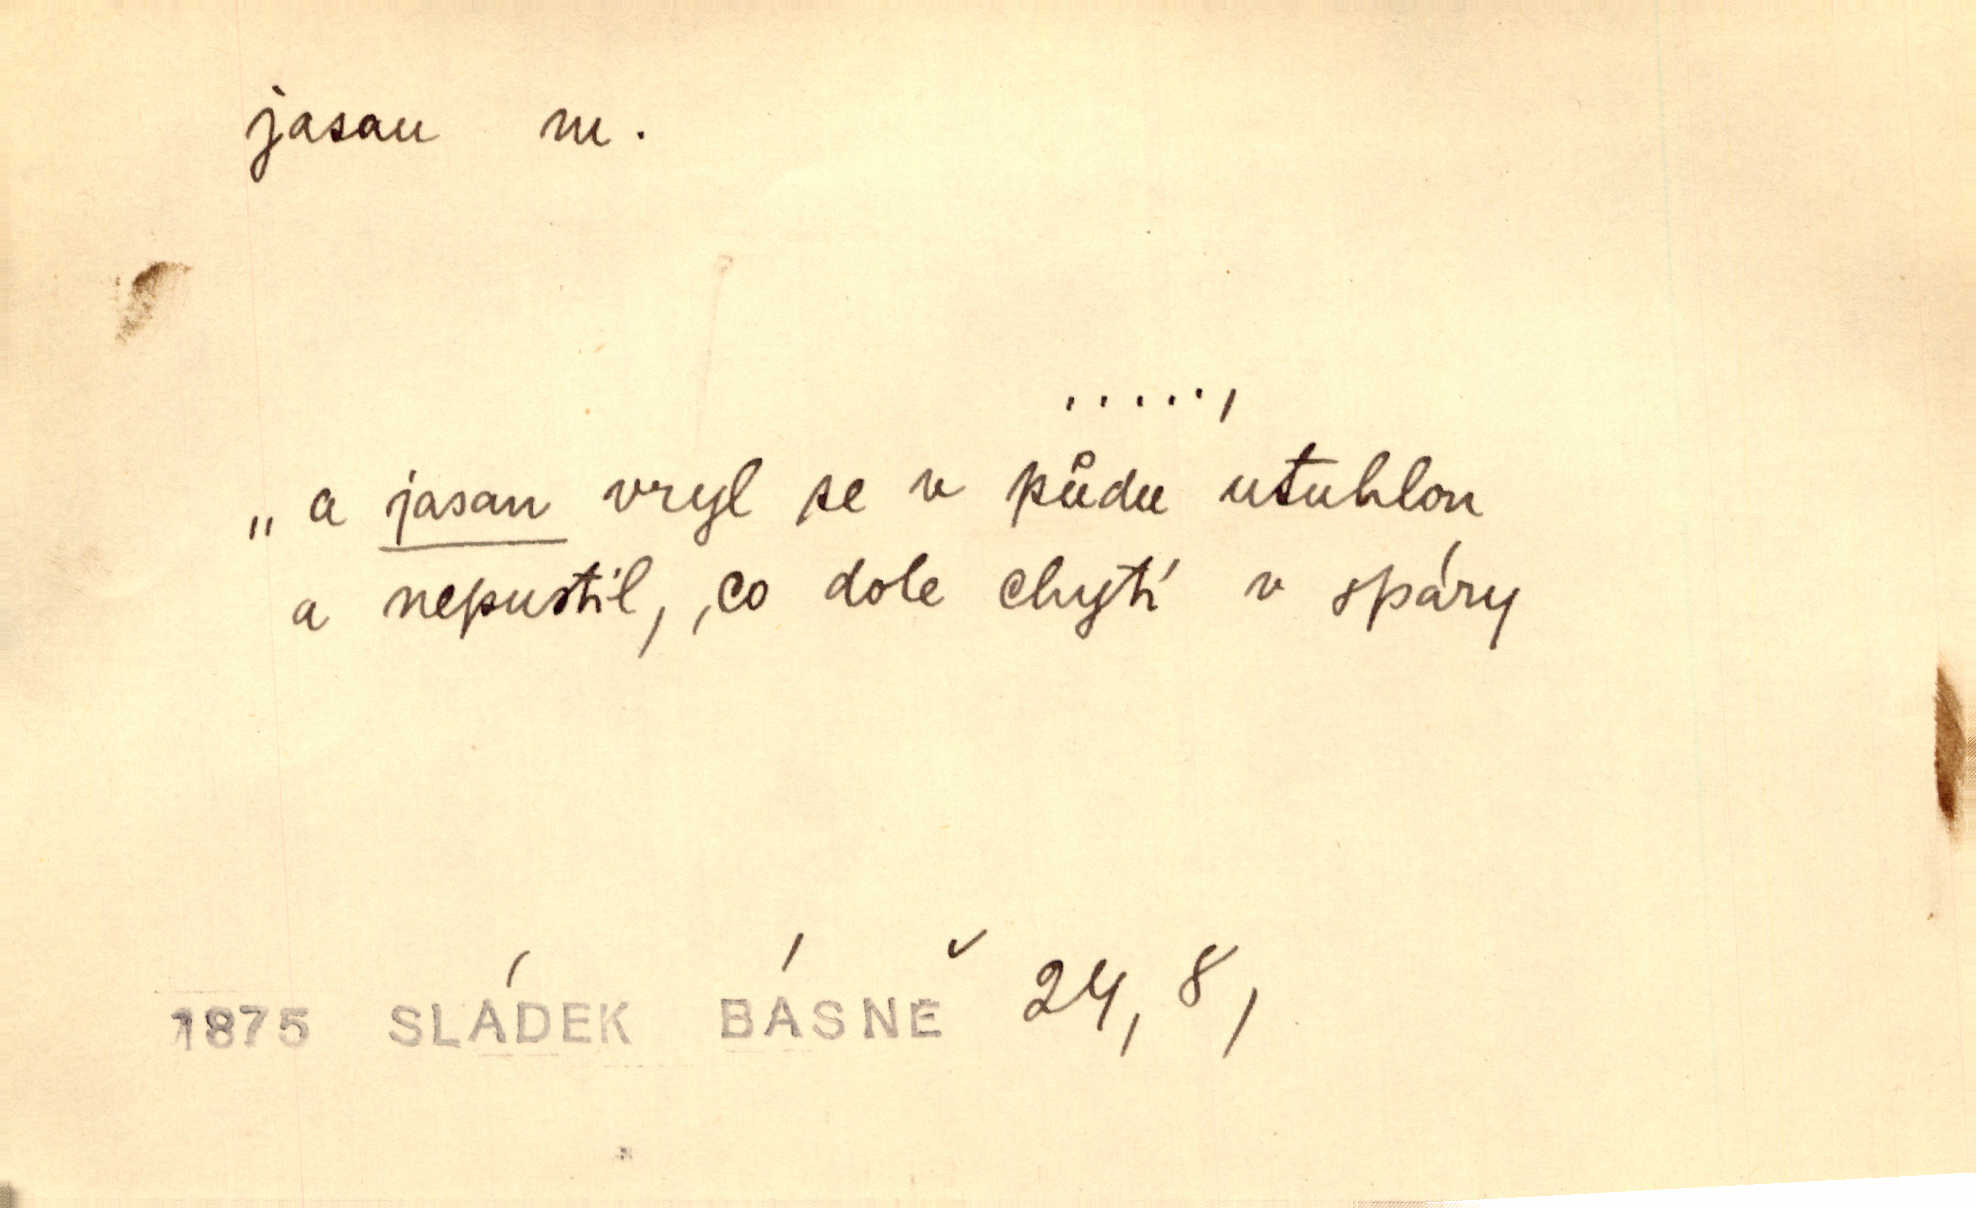 jasan m.
.....,
„a jasan vryl se v půdu utuhlou
a nepustil, co dole chytí v spáry
1875 SLÁDEK BÁSNĚ 24, 8,